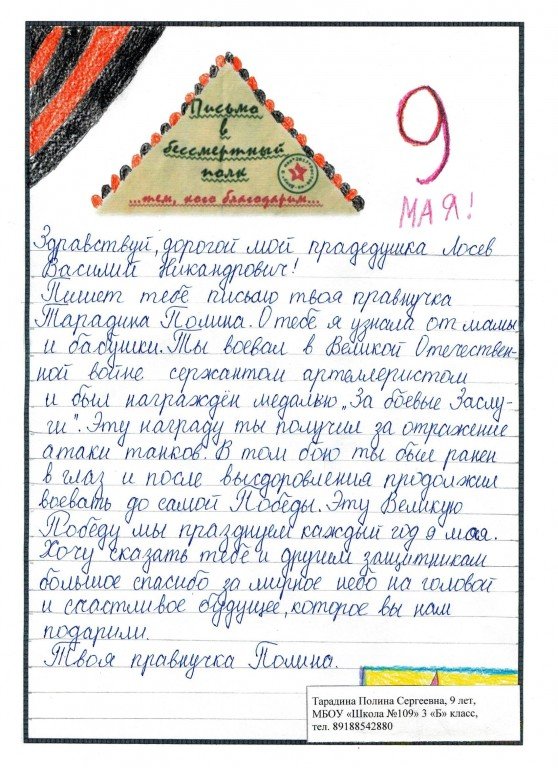 Письмо
в
бессмертный
полк
...тем, кого благодарим...
9
МАЯ!
Здравствуй, дорогой мой прадедушка Лосев
Василий Никандрович!
Пишет тебе письмо твоя правнучка
Тарадина Полина. О тебе я узнала от мамы
и бабушки. Ты воевал в Великой Отечествен-
ной войне сержантом артеллеристом
и был награждён медалью „За боевые Заслу-
ги". Эту награду ты получил за отражение
атаки танков. В том бою ты был ранен
в глаз и после выздоровления продолжил
воевать до самой Победы. Эту Великую
Победу мы празднуем каждый год 9 мая.
Хочу сказать тебе и другим защитникам
большое спасибо за мирное небо на головой
и счастливое будущее, которое вы нам
подарили.
Твоя правнучка Полина.
Тарадина Полина Сергеевна, 9 лет,
МБОУ «Школа №109» 3 «Б» класс,
тел. 89188542880